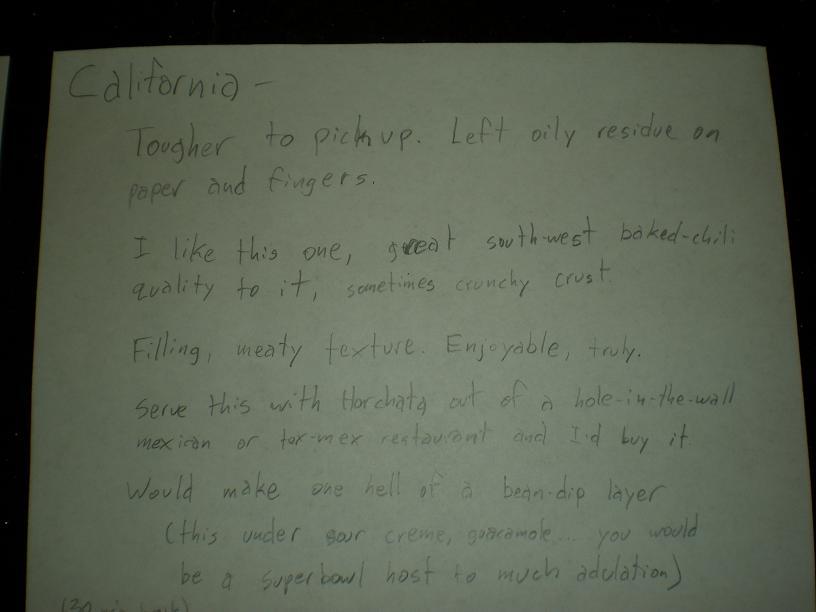 California -
Tougher to pick up. Left oily residue on
paper and fingers.
I like this one, great south-west baked-chili
quality to it, sometimes crunchy crust.
Filling, meaty texture. Enjoyable, truly.
Serve this with Horchata out of a hole-in-the-wall
mexican or tex-mex restaurant and I'd buy it
Would make one hell of a bean-dip layer
(this under sour creme, guacamole... you would
be a superbowl host to much adulation)
(30 min